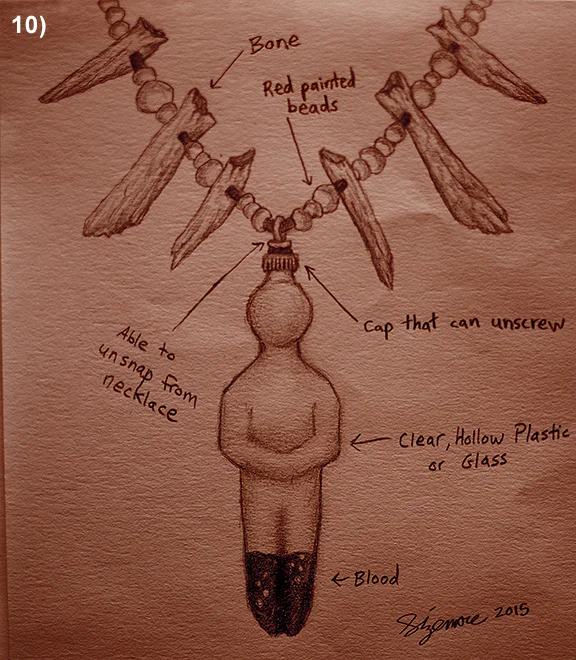 10)
Bone
Red painted
beads
Cap that can unscrew
Able to
unsnap from
necklace
Clear, Hollow Plastic
or Glass
Blood
Sizemore 2015